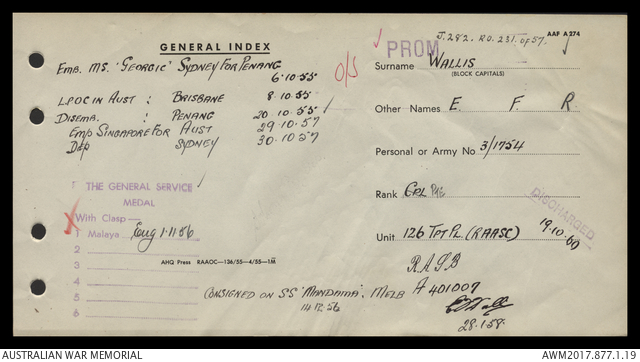 GENERAL INDEX
J.282. R.O. 231 OF 57.
AAF A 274
EMB. M.S. 'GEORGIC' SYDNEY FOR PENANG
6·10·55
O/S
L.P.O.C IN AUST : BRISBANE 8·10·55
DISEMB: PENANG 20·10·55
EMB SINGAPORE FOR AUST 29·10·57
SYDNEY 30·10·57
PROM
Surname WALLIS
(BLOCK CAPITALS)
Other Names E. F. R.
Personal or Army No 3/1754
Rank CPL Pte
DISCHARGED
19·10·60
Unit 126 TPT PL (RAASC)
THE GENERAL SERVICE
MEDAL
With Clasp—
1 Malaya Eng 1·11·56
2
3
4
5
6
AHQ Press RAAOC—136/55—4/55—1M
R.A.S.B
A 401007
CONSIGNED ON SS 'MANDAMA', MELB
14·12·56
28·1·58·
AUSTRALIAN WAR MEMORIAL
AWM2017.877.1.19